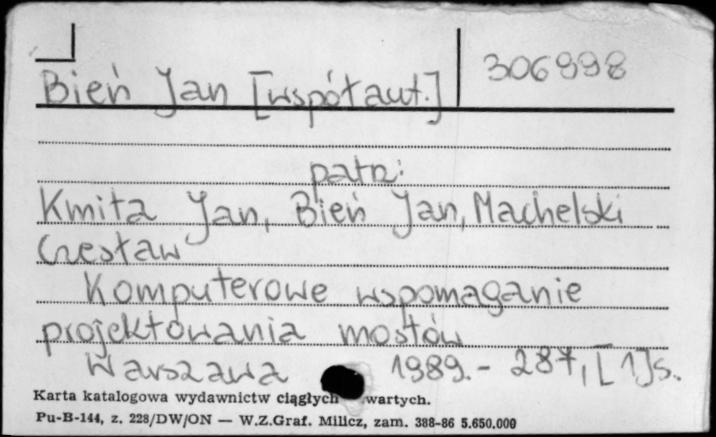 306998
Bień Jan [współaut.]
patrz:
Kmita Jan, Bień Jan, Machelski
Czesław
Komputerowe wspomaganie
projektowania mostów
Warszawa 1989.- 287, [1]s.
Karta katalogowa wydawnictw ciągłych wartych.
Pu-B-144, z. 228/DW/ON — W.Z.Graf. Milicz, zam. 388-86 5.650.000